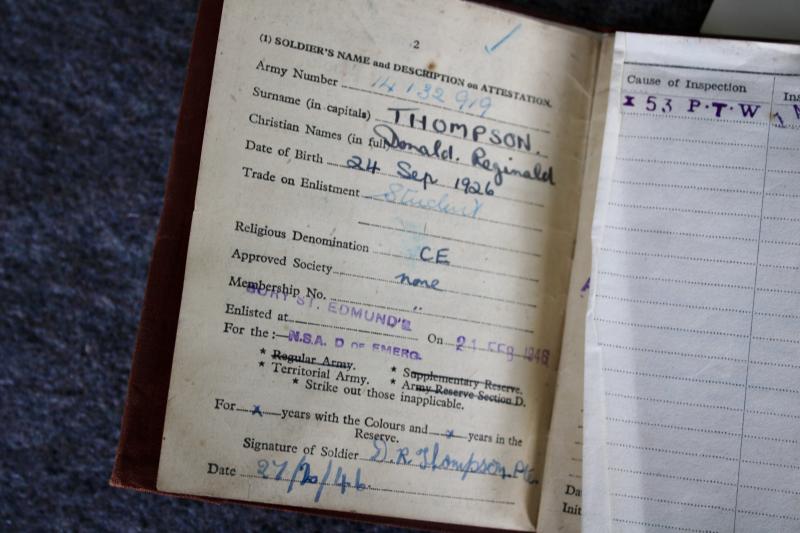 2
(1) SOLDIER'S NAME and DESCRIPTION on ATTESTATION.
Army Number 14132919
Surname (in capitals) THOMPSON.
Christian Names (in full) Donald. Reginald
Date of Birth 24 Sep 1926
Trade on Enlistment Student
Religious Denomination CE
Approved Society none
Membership No. "
Enlisted at BURY ST. EDMUND'S On 21 FEB 1946
For the :— N.S.A. D OF EMERG.
* Regular Army. * Supplementary Reserve.
* Territorial Army. * Army Reserve Section D.
* Strike out those inapplicable.
For x years with the Colours and x years in the
Reserve.
Signature of Soldier D. R. Thompson. Pte.
Date 27/2/46
Cause of Inspection
53 P.T.W
Da
Init